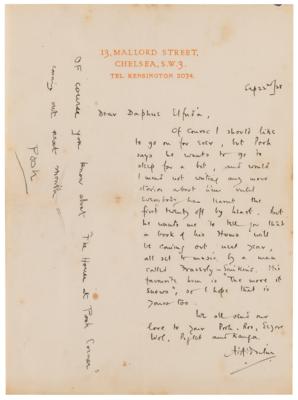 13, MALLORD STREET,
CHELSEA, S.W.3.
TEL. KENSINGTON 2074.
Sept 22nd /28
Dear Daphne
Of course I should like
to go on for ever, but Pooh
says he wants to go to
sleep for a bit, and would
I mind not writing any more
stories about him until
everybody has learnt the
first twenty off by heart. But
he wants me to tell you that
a book of his Hums will
be coming out next year,
all set to music by a man
called Fraser-Simson. His
favourite hum is "The more it
snows", so I hope that is
yours too.
We all send our
love to your Pooh, Roo, Eeyore
Wol, Piglet and Kanga.
A.A. Milne
Of course you know about "The House at Pooh Corner"
coming out next month =
POOH